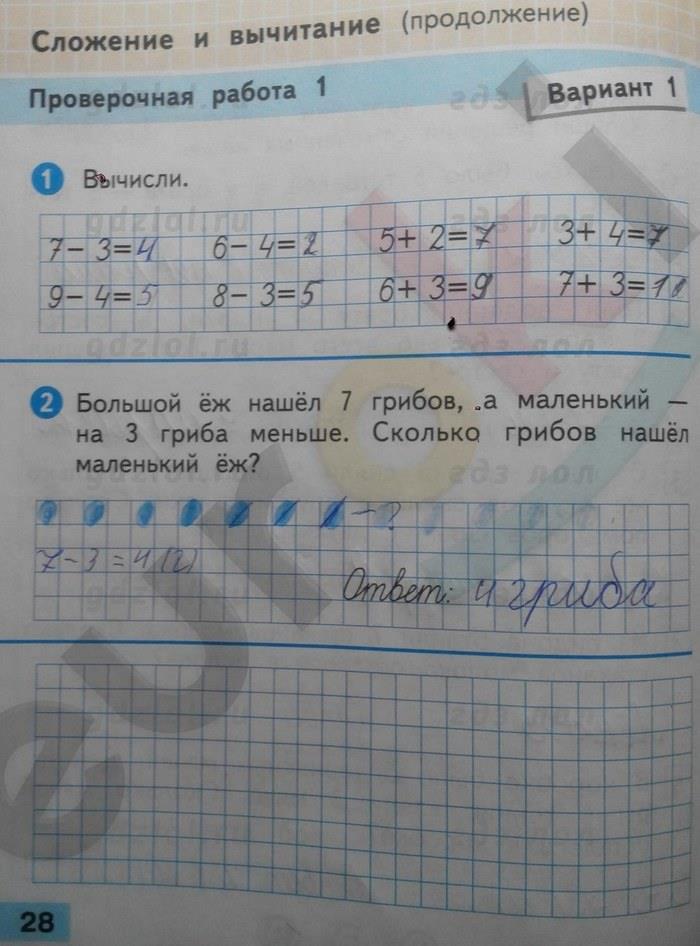 Сложение и вычитание (продолжение)
Проверочная работа 1
Вариант 1
1 Вычисли.
7 − 3 = 4 6 − 4 = 2 5 + 2 = 7 3 + 4 = 7
9 − 4 = 5 8 − 3 = 5 6 + 3 = 9 7 + 3 = 10
2 Большой ёж нашёл 7 грибов, а маленький —
на 3 гриба меньше. Сколько грибов нашёл
маленький ёж?
— ?
7 − 3 = 4 (г)
Ответ: 4 гриба
28
gdzlol.ru
гдз лол
euroki